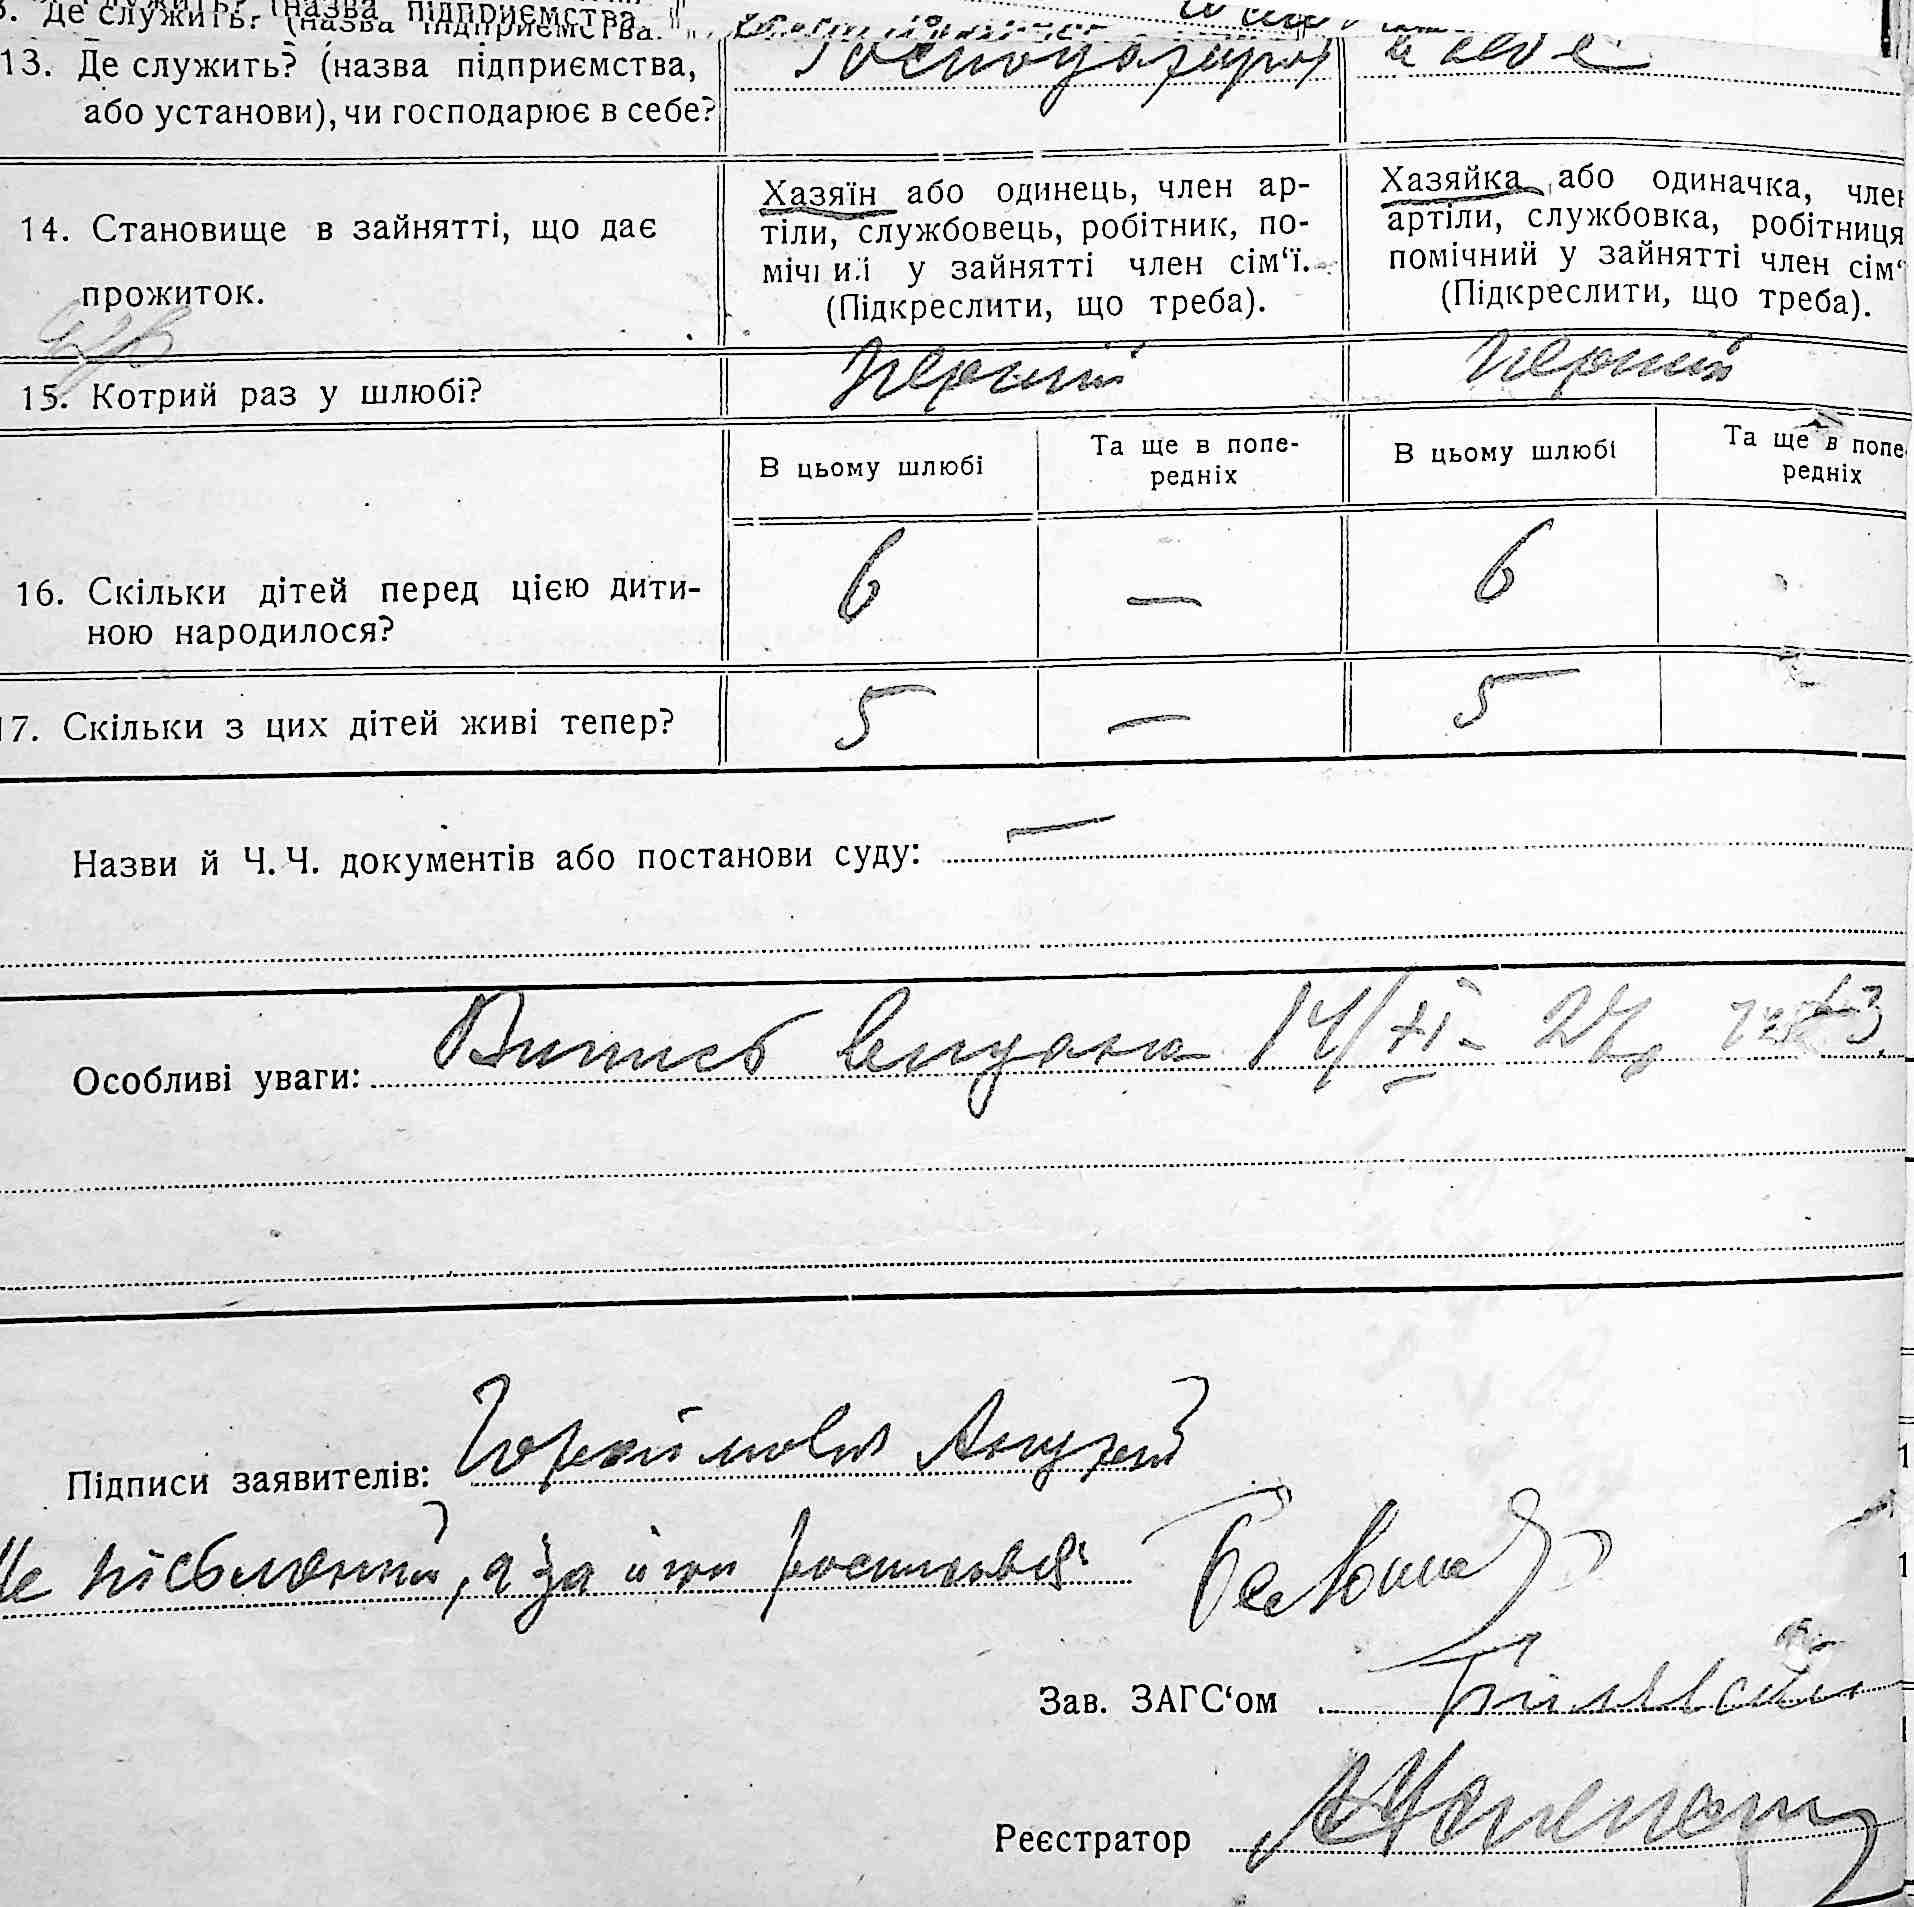 13. Де служить? (назва підприємства,
або установи), чи господарює в себе?
14. Становище в зайнятті, що дає
прожиток.
Хазяїн або одинець, член ар-
тіли, службовець, робітник, по-
мічний у зайнятті член сім'ї.
(Підкреслити, що треба).
Хазяйка або одиначка, член
артіли, службовка, робітниця
помічний у зайнятті член сім'
(Підкреслити, що треба).
15. Котрий раз у шлюбі? Перший Перший
В цьому шлюбі
Та ще в попе-
редніх
В цьому шлюбі
Та ще в попе
редніх
16. Скільки дітей перед цією дити-
ною народилося?
6 — 6
17. Скільки з цих дітей живі тепер? 5 — 5
Назви й Ч.Ч. документів або постанови суду: —
Особливі уваги: Випись видана 14/XI- 27
Підписи заявителів: Андрей
Не письменний, а за його росписався
Зав. ЗАГС'ом
Реєстратор